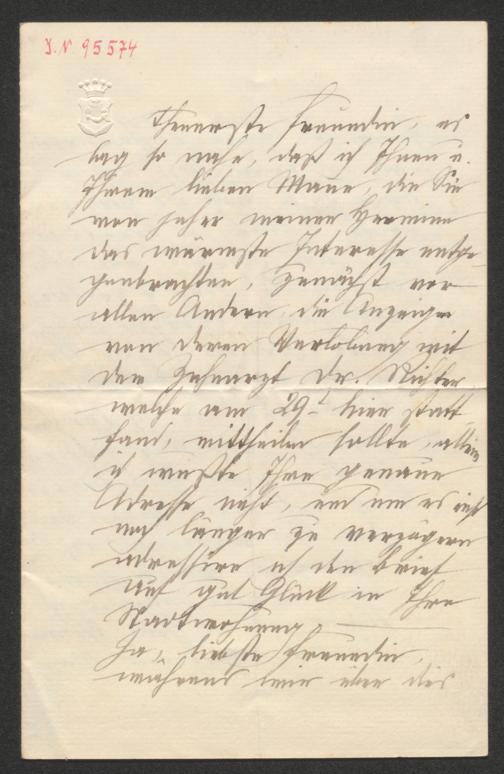 I.N 95574
Theuerste Freundin, es
lag so nahe, daß ich Ihnen u.
Ihrem lieben Mane, die Sie
von jeher meiner Hermine
das wärmste Interesse entge-
genbrachten, zunächst vor
allen Andern, die Anzeige
von deren Verlobung mit
dem Zahnarzt Dr. Richter
welche am 29t hier statt
fand, mittheilen sollte, allein
ich wußte Ihre genaue
Adresse nicht, und um es nicht
noch länger zu verzögern
adressire ich den Brief
auf gut Glück in Ihre
Stadtwohnung. —
Ja, liebste Freundin,
während wir über das